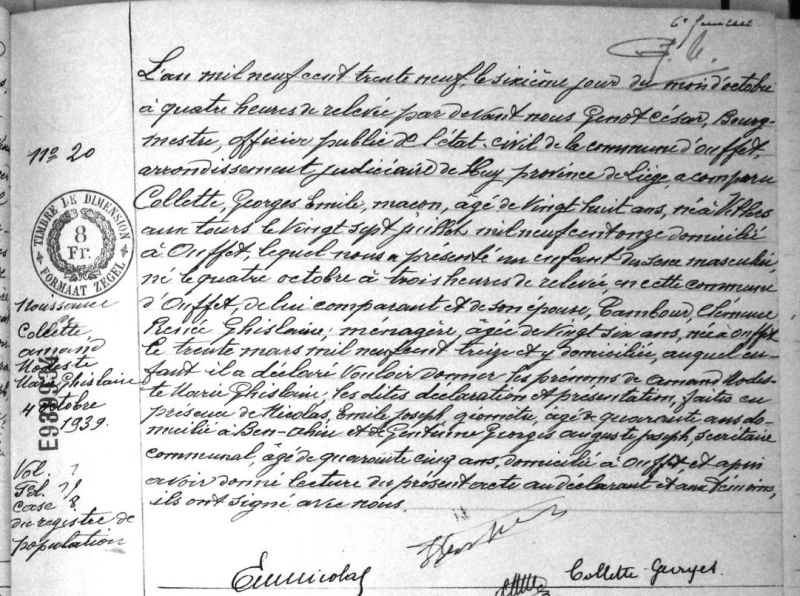 6e feuillet
L'an mil neuf cent trente neuf, le sixième jour du mois d'octobre
à quatre heures de relevée par devant nous Genot César, Bourg-
mestre, officier public de l'état-civil de la commune d'Ouffet,
arrondissement judiciaire de Huy province de Liège, a comparu
Collette, Georges Emile, maçon, âgé de vingt huit ans, né à Vithes
aux tours le vingt sept juillet mil neuf cent onze domicilié
à Ouffet, lequel nous a présenté un enfant du sexe masculin,
né le quatre octobre à trois heures de relevée, en cette commune
d'Ouffet, de lui comparant et de son épouse, Tambour, Clémence
Renée Ghislaine, ménagère, âgée de vingt six ans, née à Ouffet
le trente mars mil neuf cent treize et y domiciliée, auquel en-
fant il a déclaré vouloir donner les prénoms de Amand Modes-
te Marie Ghislain; les dites déclaration et présentation, faites en
présence de Nicolas, Emile Joseph, géomètre, âgé de quarante ans do-
micilié à Ben-Ahin et de Gentinne Georges Auguste Joseph, secrétaire
communal, âgé de quarante cinq ans, domicilié à Ouffet, et après
avoir donné lecture du présent acte au déclarant et aux témoins,
ils ont signé avec nous.
Em Nicolas
Collette-Georges
No 20
TIMBRE DE DIMENSION
8
Fr.
FORMAAT ZEGEL
Naissance
Collette
Amand
Modeste
Marie Ghislain
4 octobre
1939.
Vol.
Fol.
Case 8
du registre de
population